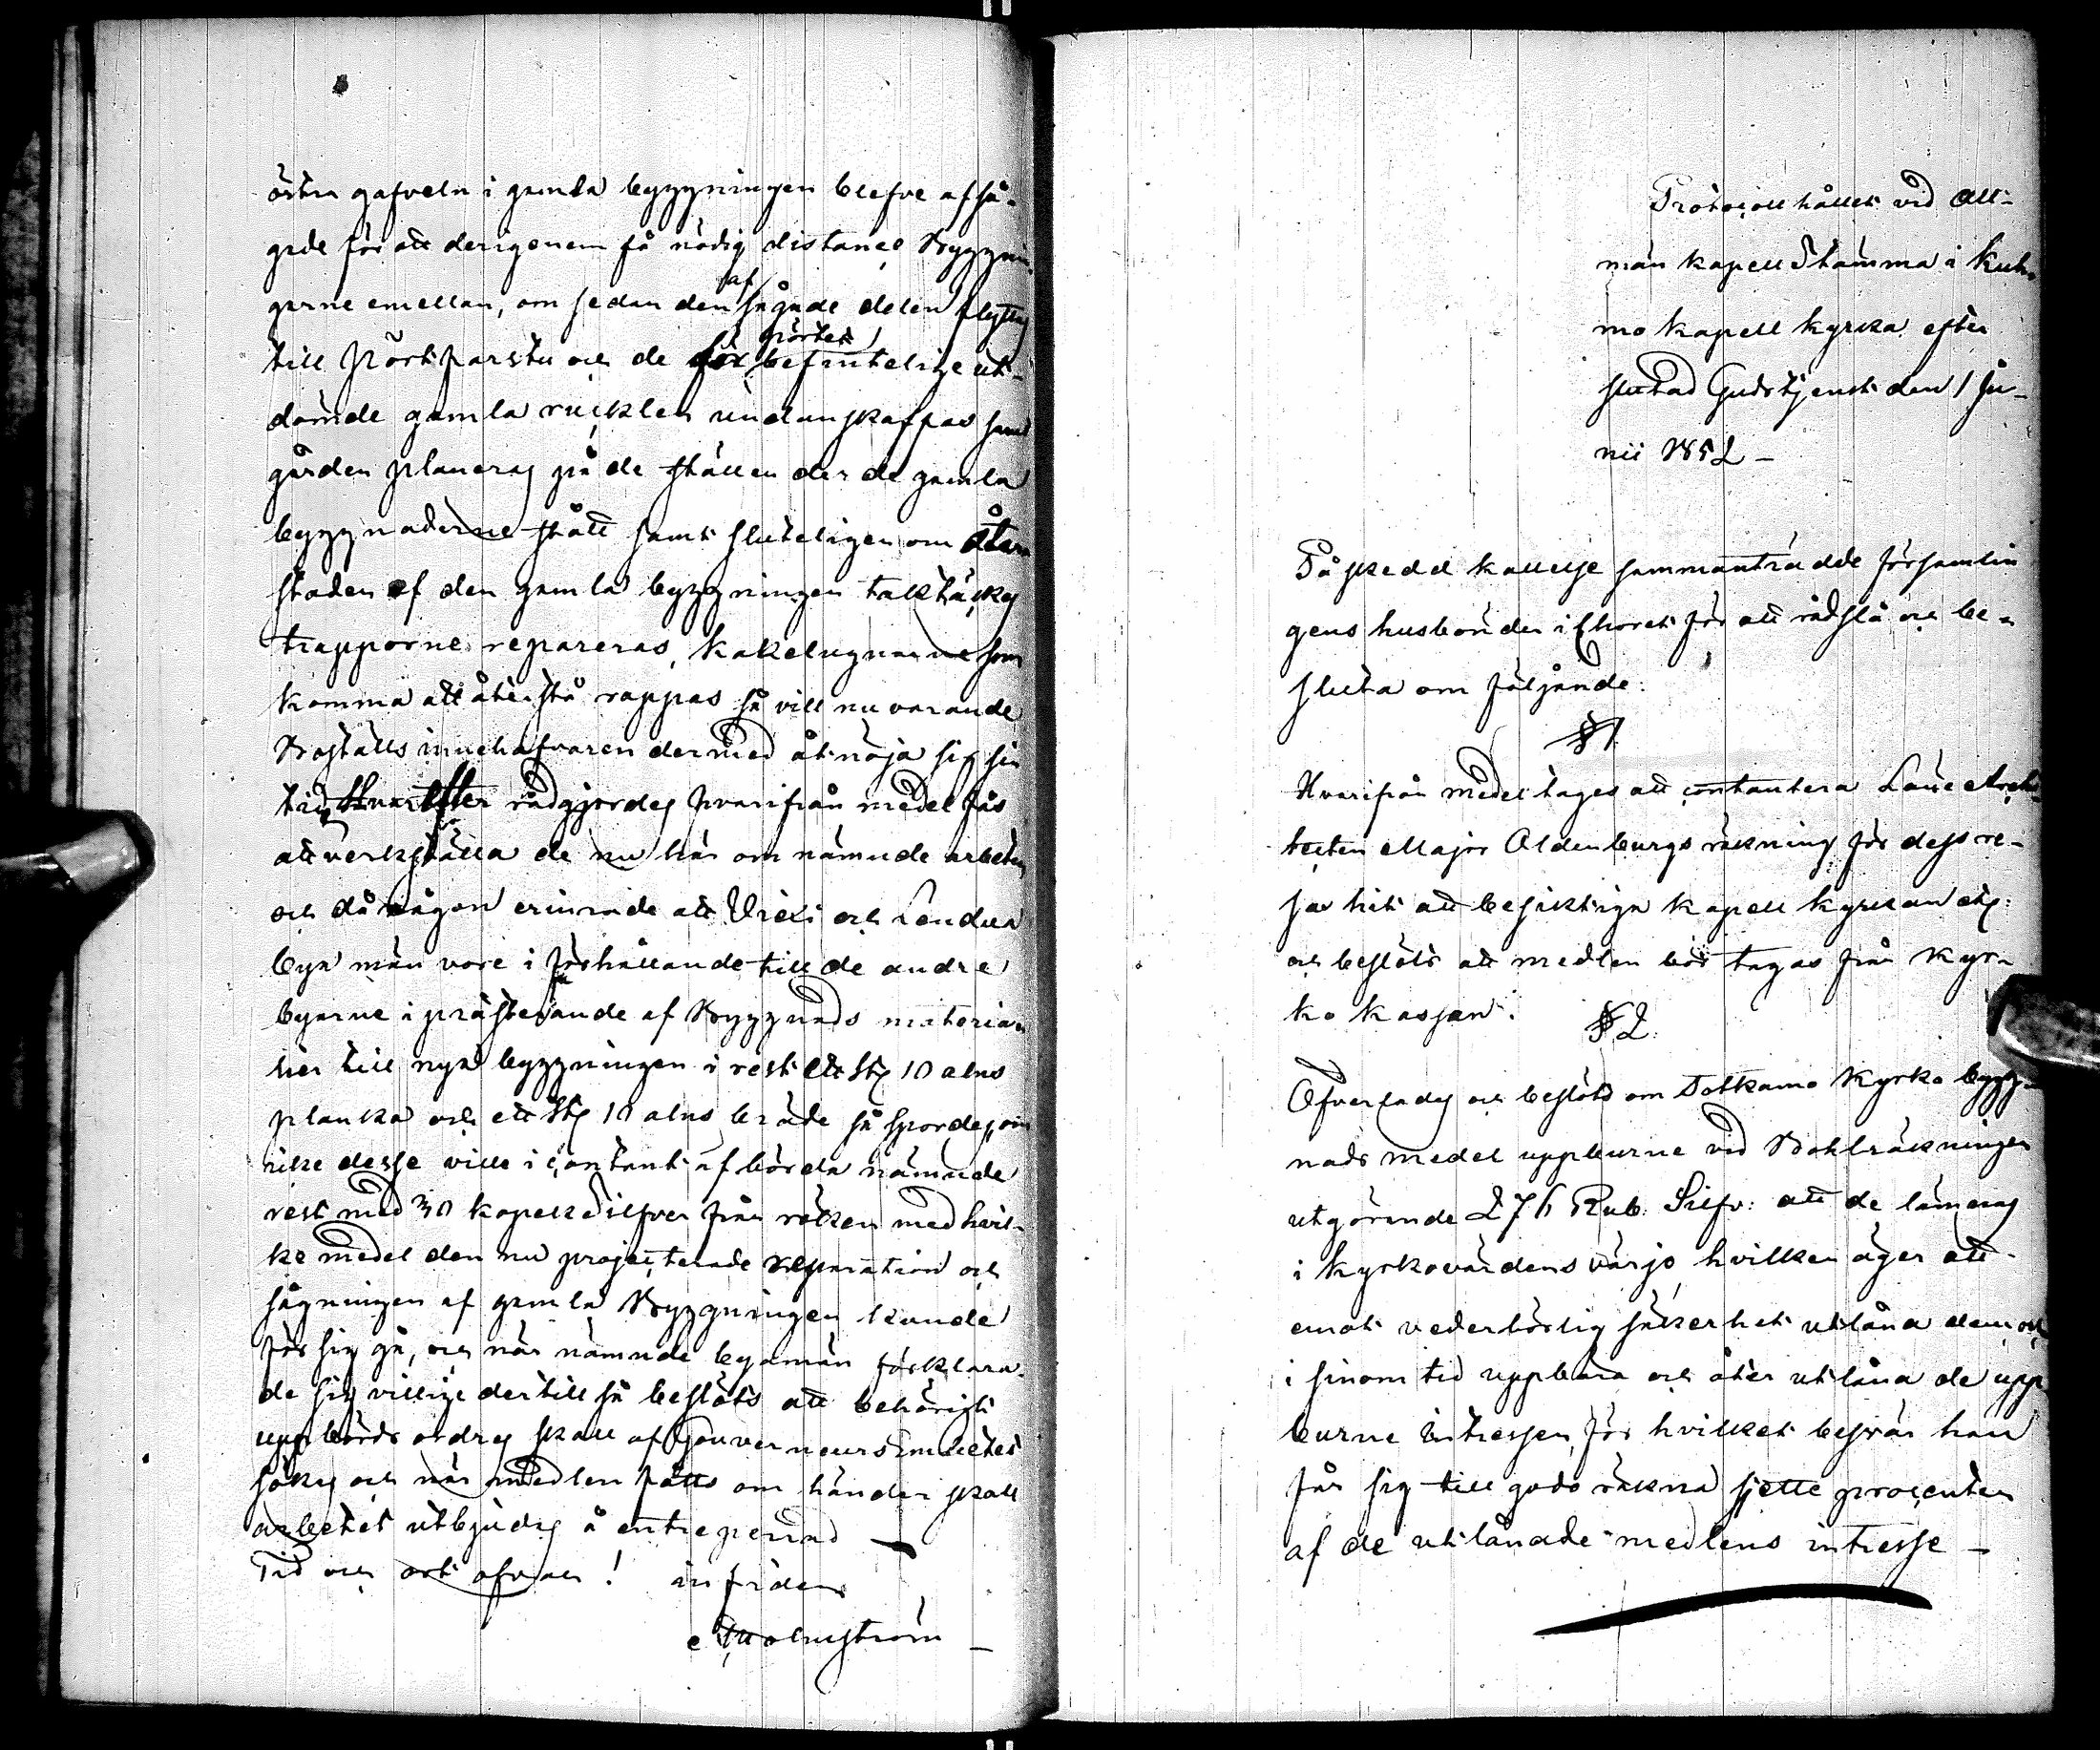 östra gafveln i gamla byggningen blefve afså-
gade för att derigenom få nödig distance Byggnin-
garne emellan, om sedan den af sågade delen flyttas
till Pörtfarstu och de för pörtet befintelige ut-
dömde gamla rucklen undanskaffas samt
gården planeras på de ställen der de gamla
byggnaderne stått samt sluteligen om åter-
stoden af den gamla byggningen taktäckes
trapporne repareras, kakelugnarne som
komma att återstå rappas så vill nu varande
Boställs innehafvaren dermed åtnöja sig sin
tid, Hvarefter rådgjordes hvarifrån medel fås
att verkställa de nu här om nämnde arbeten
och då någon erinrade att Vieksi och Lendua
bya män vore i förhållande till de andre
byarne i præsterande af Byggnads materia-
lier till nya byggningen i rest ett st 10 alns
planka och ett st 10 alns bräde så spordes, om
icke desse ville i contant afbörda nämnde
rest med 30 kopek Silfver från röken med hvil-
ke medel den nu projecterade reparation och
sågningen af gamla Byggningen kunde
för sig gå, och när nämnde byamän förklara-
de sig villige dertill så beslöts att behörigt
uppbörds ordres skall af Gouverneurs Embetet
sökas och när medlen fåtts om händer skall
arbetet utbjudas å entreprenad —
Tid och ort ofvan! in fidem
Malmström —
Protocoll hållet vid All-
män kapell Stämma i Kuh-
mo kapell kyrka efter
slutad Gudstjenst den 1 Ju-
nii 1852 —
På skedd kallelse sammanträdde församlin
gens husbönder i Choret för att rådslå och be-
sluta om följande:
§ 1.
Hvarifrån medel tages att contantera Läne Archi-
tecten Major Oldenburgs räkning för dess re-
sa hit att besiktiga kapell kyrkan etc:
och beslöts att medlen bör tagas från Kyr-
ko kassan.
§ 2.
Öfverlades och beslöts om Sotkamo Kyrko bygg-
nads medel uppburne vid Bohlräkningen
utgörande 276 Rub: Silfv: att de lämnas
i Kyrkovärdens värjo hvilken äger att
emot vederbörlig säkerhet utlåna dem och
i sinom tid uppbära och åter utlåna de upp
burne intressen, för hvilket besvär han
får sig till godo räkna sjette procenten
af de utlånade medlens intresse —